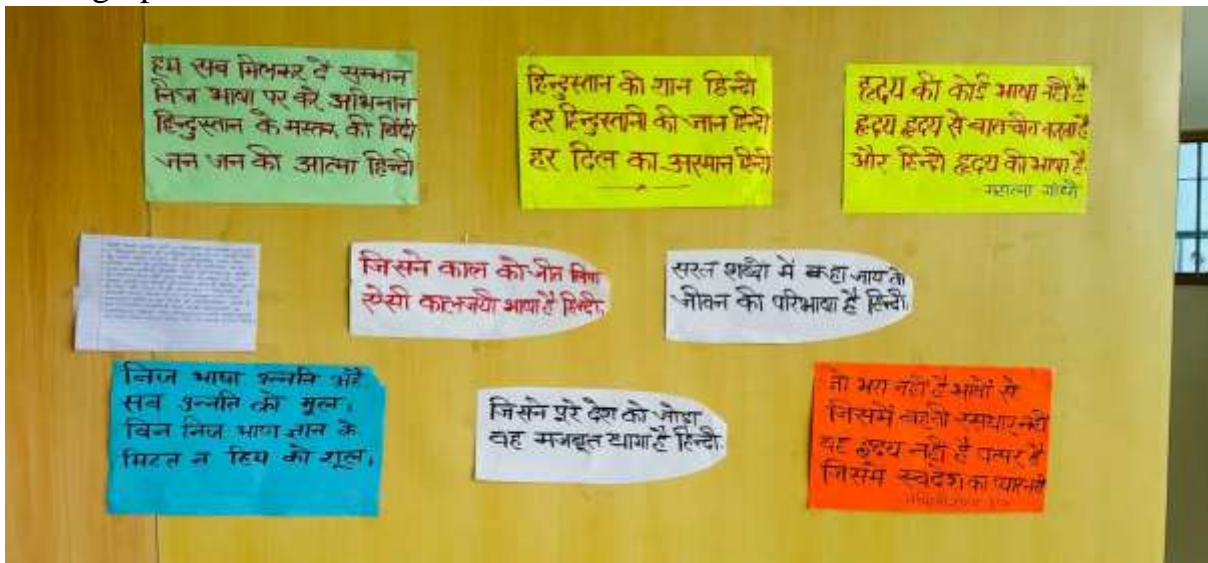 हम सब मिलकर दें सम्मान
निज भाषा पर करे अभिमान
हिन्दुस्तान के मस्तक की बिंदी
जन जन की आत्मा हिन्दी
हिन्दुस्तान की शान हिन्दी
हर हिन्दुस्तानी की जान हिन्दी
हर दिल का अस्मान हिन्दी
हृदय की कोई भाषा नहीं है
हृदय हृदय से बातचीत करता है
और हिन्दी हृदय की भाषा है
महात्मा गाँधी
जिसने काल को जीत लिया
ऐसी कालजयी भाषा है हिन्दी
सरल शब्दो में कहा जाय तो
जीवन की परिभाषा है हिन्दी
निज भाषा उन्नति अहै
सब उन्नति को मूल।
बिन निज भाषा ज्ञान के
मिटत न हिय को शूल।
जिसने पूरे देश को जोड़ा
वह मजबूत धागा है हिन्दी
जो भरा नहीं है भावों से
जिसमें बहती रसधार नही
वह हृदय नही है पत्थर है
जिसमें स्वदेश का प्यार नही